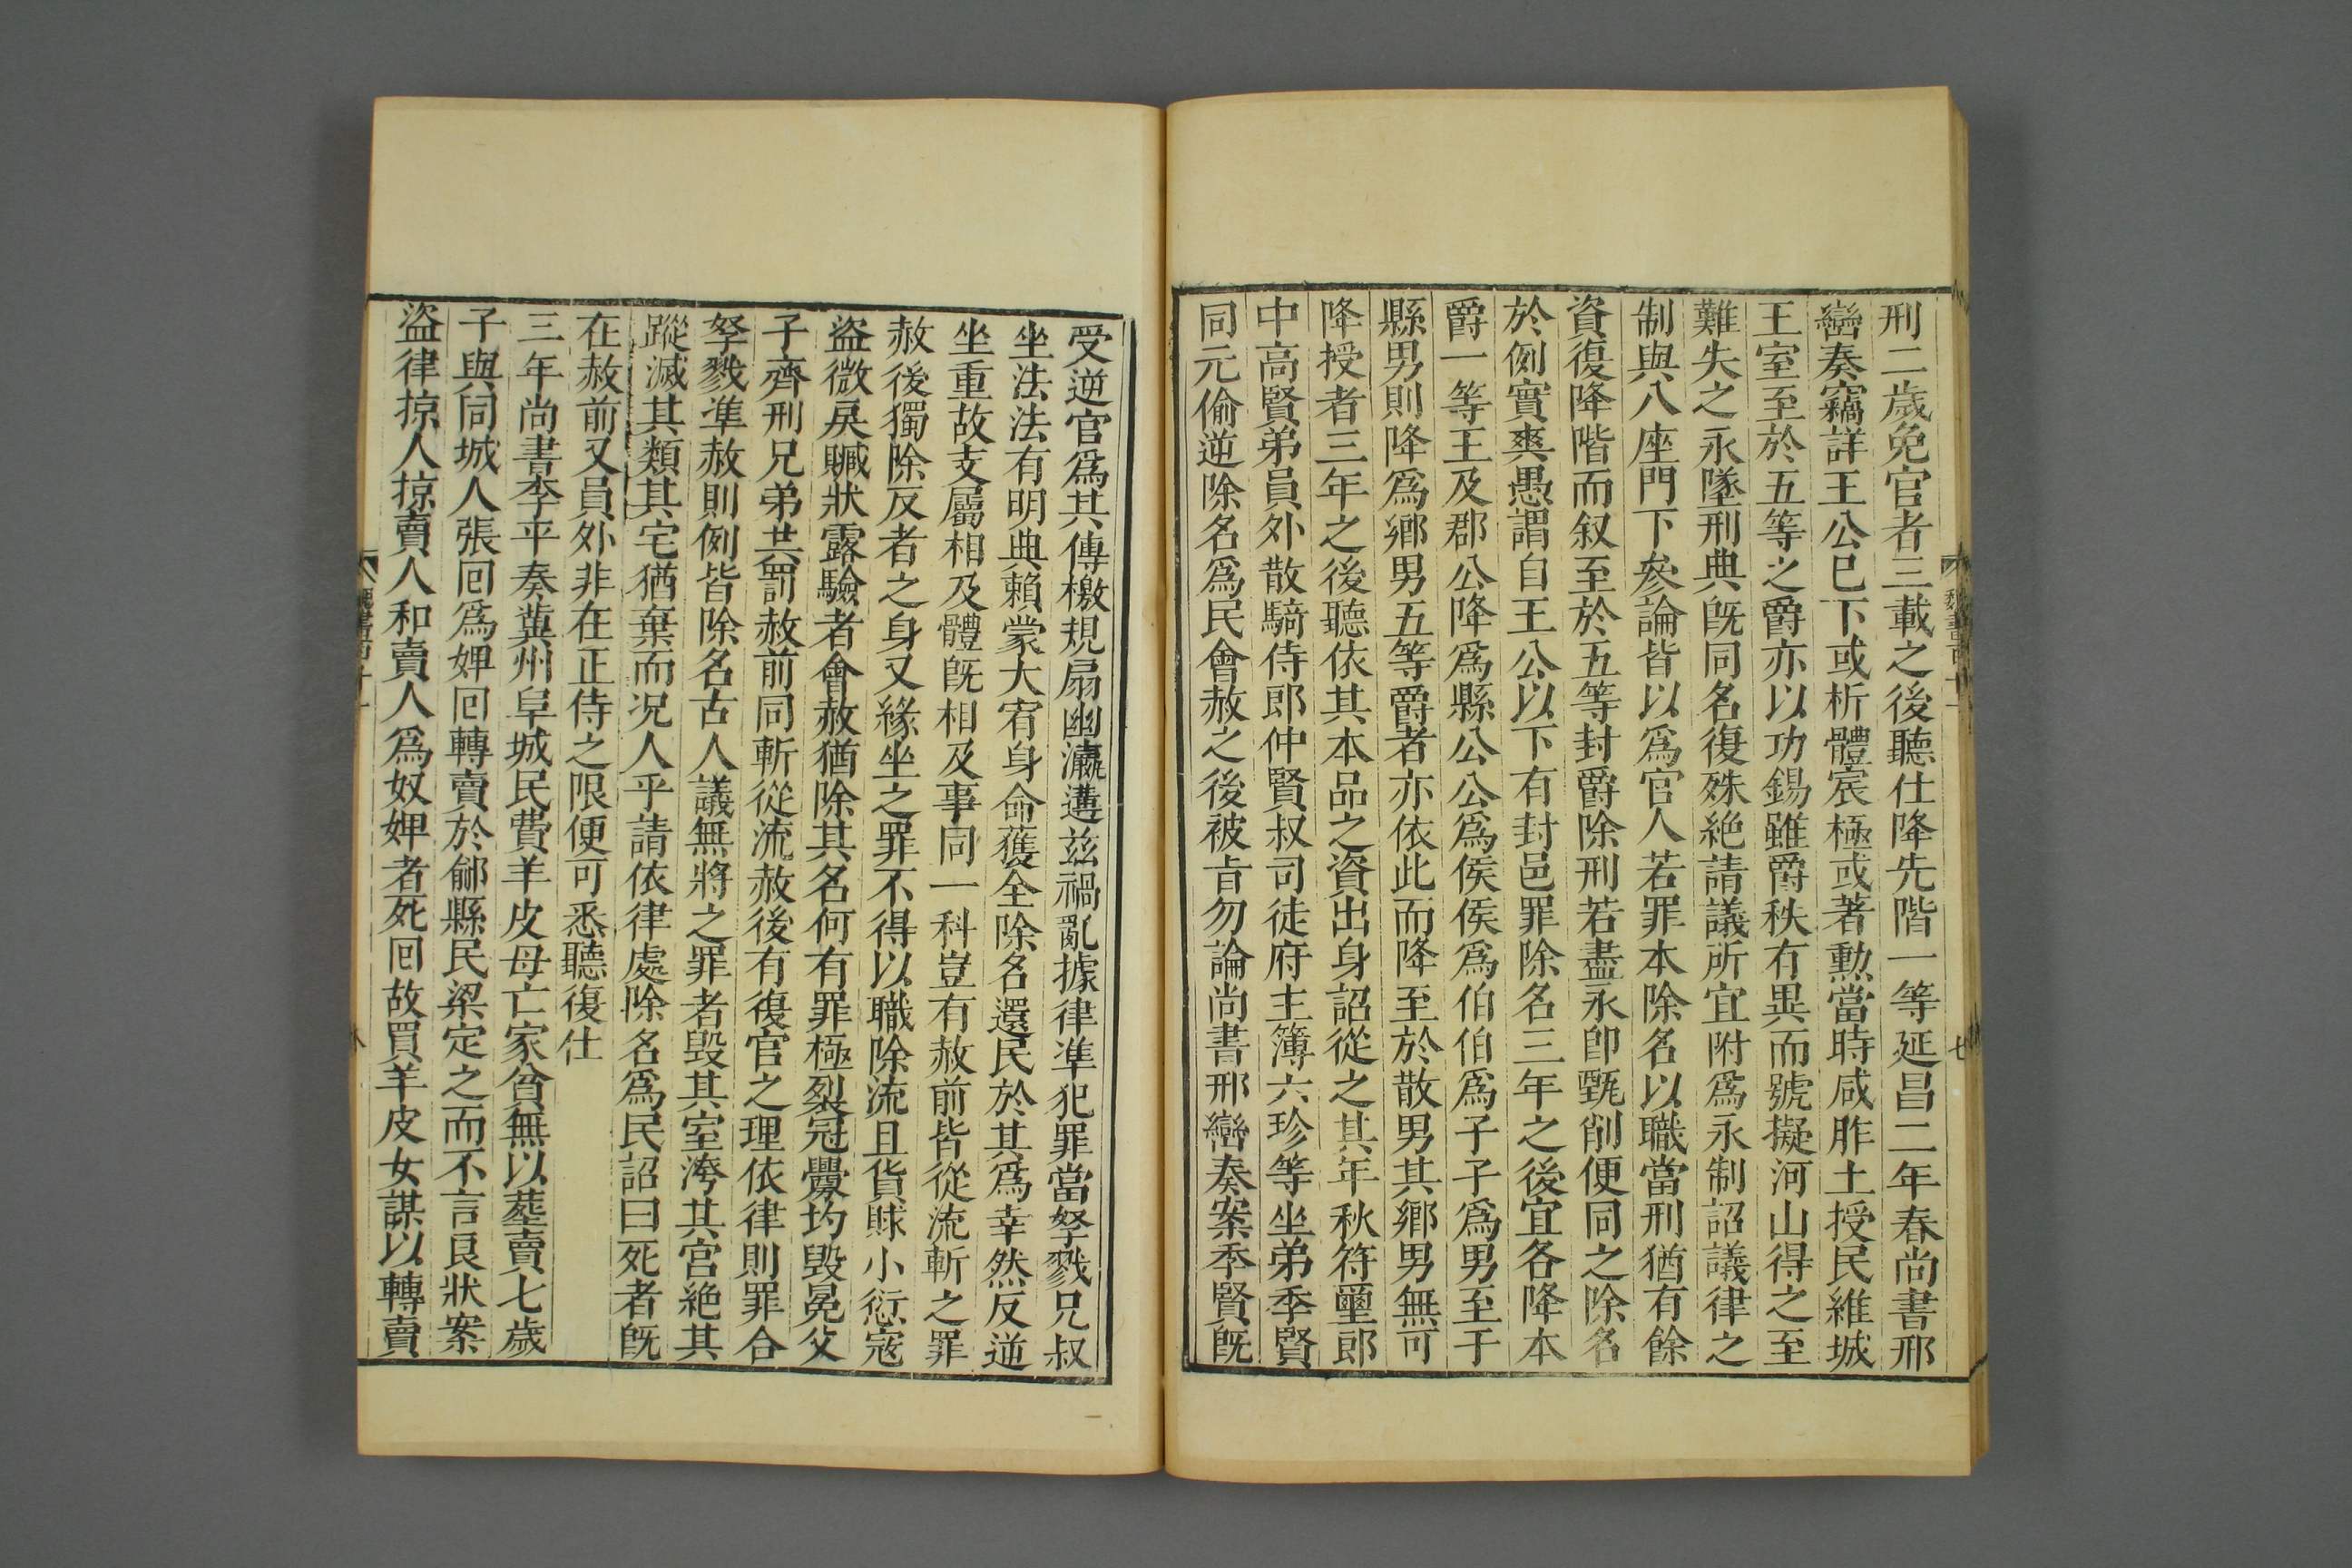 刑二歲免官者三載之後聽仕降先階一等延昌二年春尚書邢
巒奏竊詳王公已下或析體宸極或著勳當時咸胙土授民維城
王室至於五等之爵亦以功錫雖爵秩有異而號擬河山得之至
難失之永墜刑典旣同名復殊絕請議所宜附爲永制詔議律之
制與八座門下參論皆以爲官人若罪本除名以職當刑猶有餘
資復降階而叙至於五等封爵除刑若盡永卽甄削便同之除名
於例實爽愚謂自王公以下有封邑罪除名三年之後宜各降本
爵一等王及郡公降爲縣公公爲侯侯爲伯伯爲子子爲男至于
縣男則降爲鄉男五等爵者亦依此而降至於散男其鄉男無可
降授者三年之後聽依其本品之資出身詔從之其年秋符璽郎
中高賢弟員外散騎侍郎仲賢叔司徒府主簿六珍等坐弟季賢
同元偷逆除名爲民會赦之後被旨勿論尚書邢巒奏案季賢旣
魏書百十一
七
受逆官爲其傳檄規扇幽瀛遘兹禍亂據律準犯罪當孥戮兄叔
坐法法有明典賴蒙大宥身命獲全除名還民於其爲幸然反逆
坐重故支屬相及體旣相及事同一科豈有赦前皆從流斬之罪
赦後獨除反者之身又緣坐之罪不得以職除流且貨賕小愆寇
盜微戾贓狀露驗者會赦猶除其名何有罪極裂冠釁均毀冕父
子齊刑兄弟共罰赦前同斬從流赦後有復官之理依律則罪合
孥戮準赦則例皆除名古人議無將之罪者毀其室洿其宮絕其
蹤滅其類其宅猶棄而況人乎請依律處除名爲民詔曰死者旣
在赦前又員外非在正侍之限便可悉聽復仕
三年尚書李平奏冀州阜城民費羊皮母亡家貧無以葬賣七歲
子與同城人張回爲婢回轉賣於鄃縣民梁定之而不言良狀案
盜律掠人掠賣人和賣人爲奴婢者死回故買羊皮女謀以轉賣